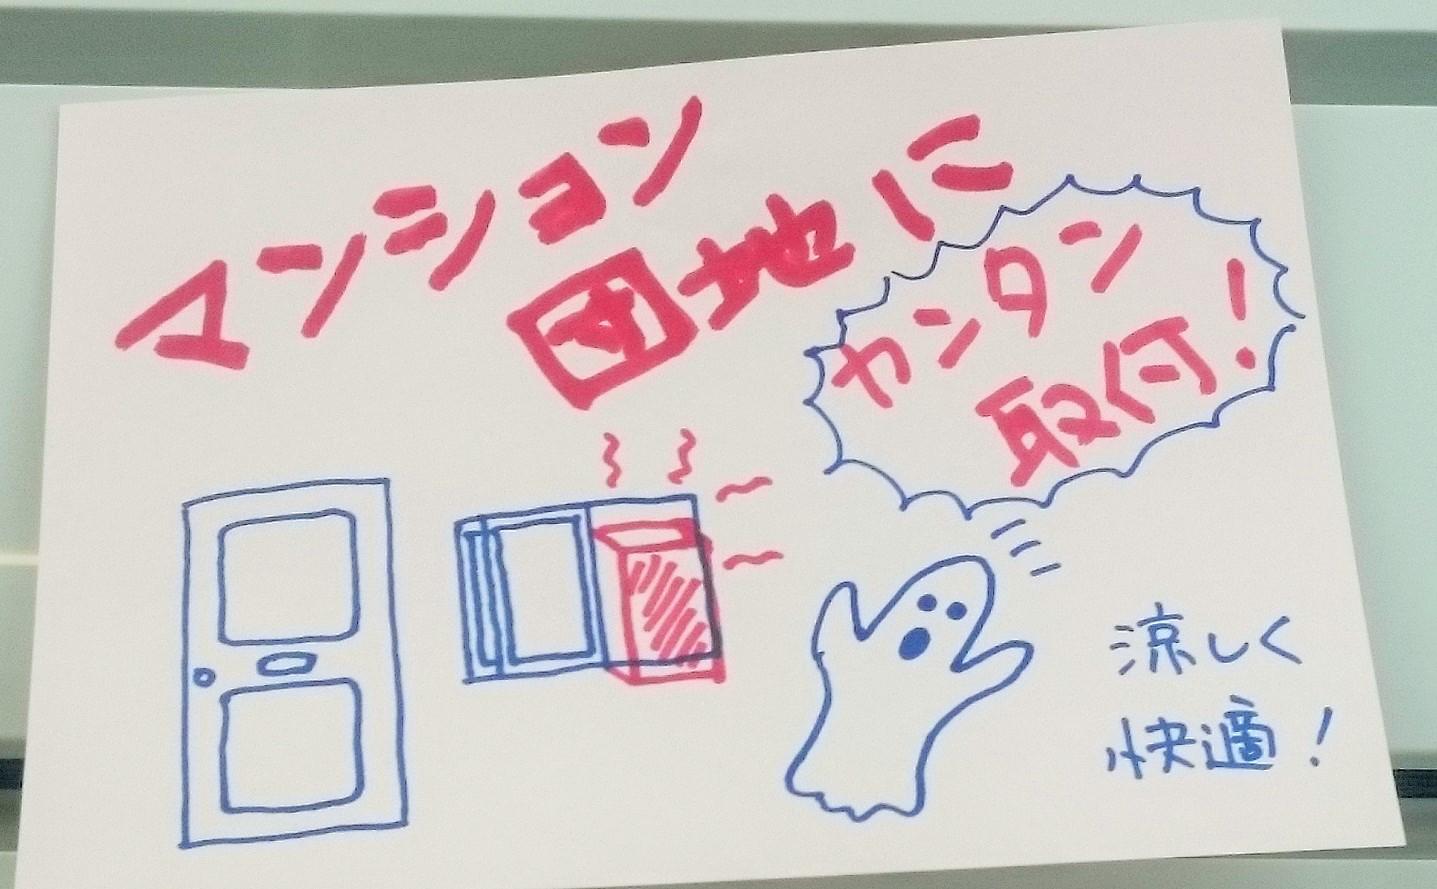 マンション
団地に
カンタン
取付!
涼しく
快適!